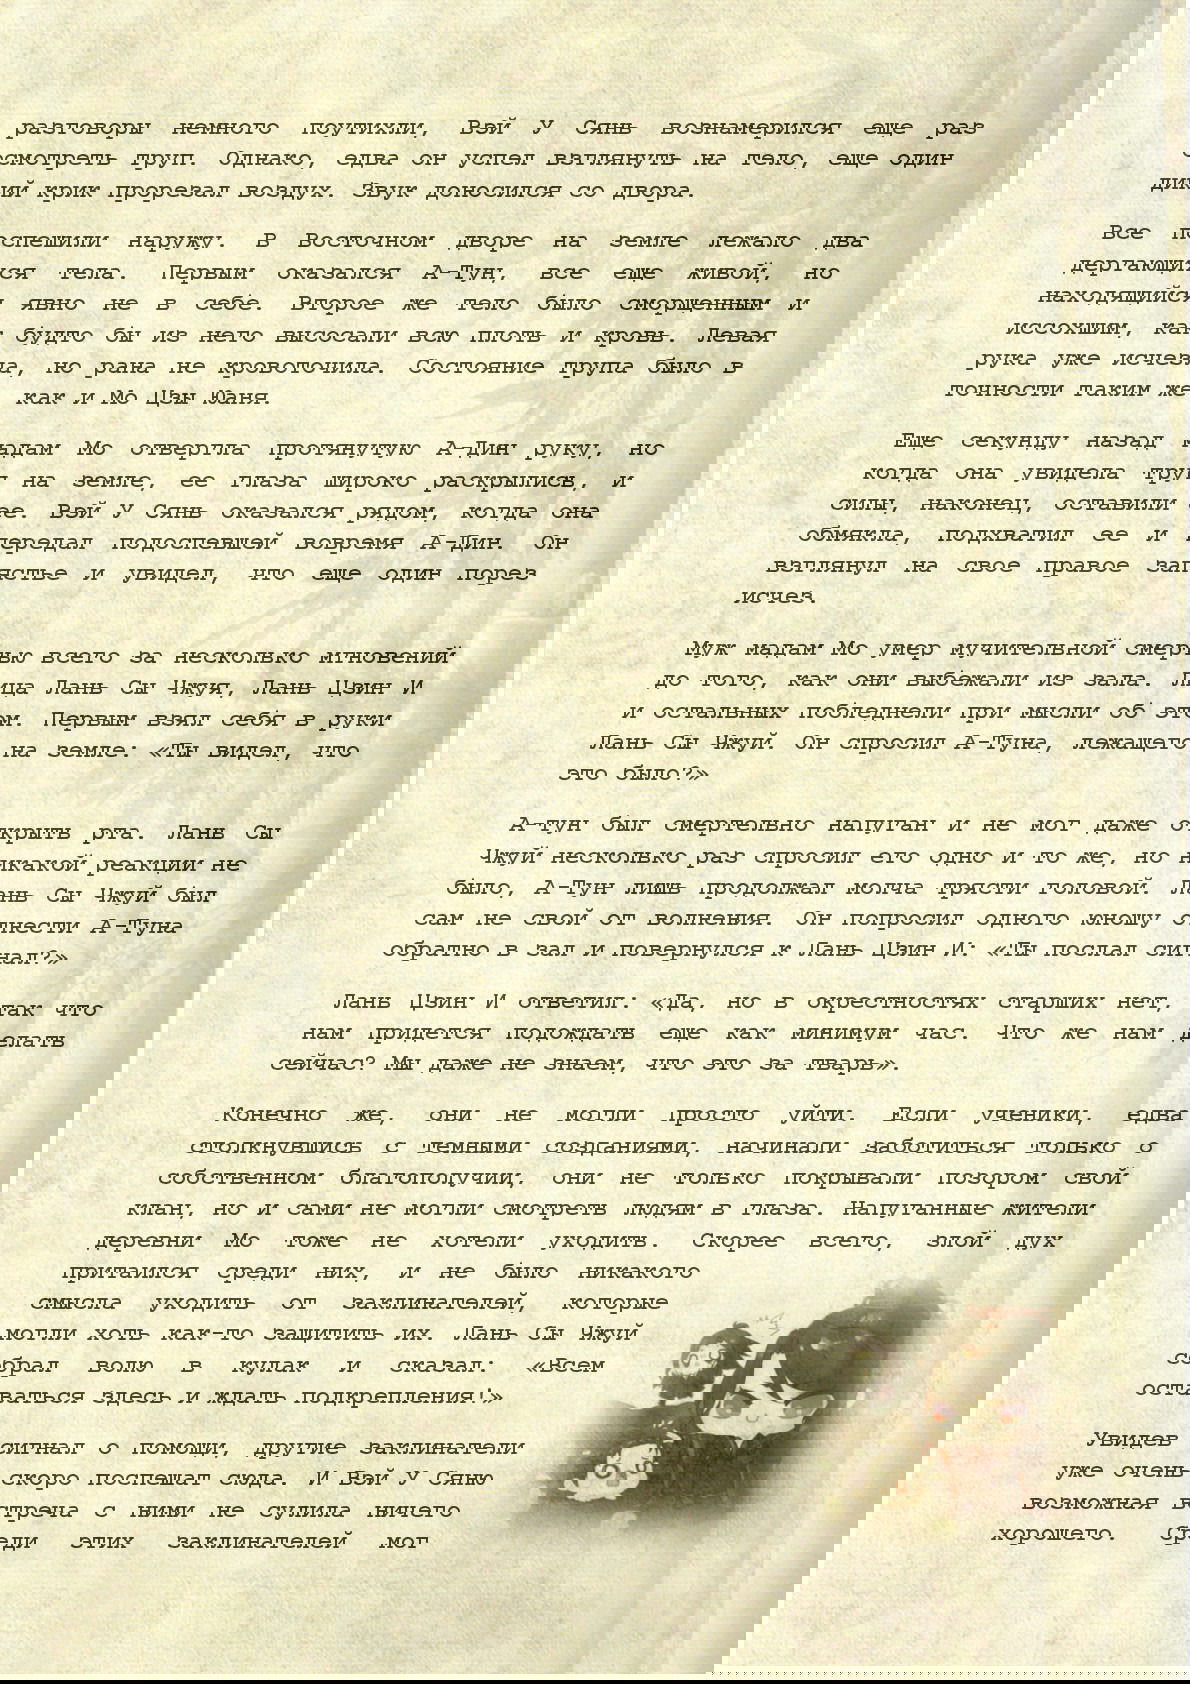 разговоры немного поутихли, Вэй У Сянь вознамерился еще раз
осмотреть труп. Однако, едва он успел взглянуть на тело, еще один
дикий крик прорезал воздух. Звук доносился со двора.
Все поспешили наружу. В Восточном дворе на земле лежало два
дергающихся тела. Первым оказался А-Тун, все еще живой, но
находящийся явно не в себе. Второе же тело было сморщенным и
иссохшим, как будто бы из него высосали всю плоть и кровь. Левая
рука уже исчезла, но рана не кровоточила. Состояние трупа было в
точности таким же, как и Мо Цзы Юаня.
Еще секунду назад мадам Мо отвергла протянутую А-Дин руку, но
когда она увидела труп на земле, ее глаза широко раскрылись, и
силы, наконец, оставили ее. Вэй У Сянь оказался рядом, когда она
обмякла, подхватил ее и передал подоспевшей вовремя А-Дин. Он
взглянул на свое правое запястье и увидел, что еще один порез
исчез.
Муж мадам Мо умер мучительной смертью всего за несколько мгновений
до того, как они выбежали из зала. Лица Лань Сы Чжуя, Лань Цзин И
и остальных побледнели при мысли об этом. Первым взял себя в руки
Лань Сы Чжуй. Он спросил А-Туна, лежащего на земле: «Ты видел, что
это было?»
А-тун был смертельно напуган и не мог даже открыть рта. Лань Сы
Чжуй несколько раз спросил его одно и то же, но никакой реакции не
было, А-Тун лишь продолжал молча трясти головой. Лань Сы Чжуй был
сам не свой от волнения. Он попросил одного юношу отнести А-Туна
обратно в зал и повернулся к Лань Цзин И: «Ты послал сигнал?»
Лань Цзин И ответил: «Да, но в окрестностях старших нет, так что
нам придется подождать еще как минимум час. Что же нам делать
сейчас? Мы даже не знаем, что это за тварь».
Конечно же, они не могли просто уйти. Если ученики, едва
столкнувшись с темными созданиями, начинали заботиться только о
собственном благополучии, они не только покрывали позором свой
клан, но и сами не могли смотреть людям в глаза. Напуганные жители
деревни Мо тоже не хотели уходить. Скорее всего, злой дух
притаился среди них, и не было никакого
смысла уходить от заклинателей, которые
могли хоть как-то защитить их. Лань Сы Чжуй
собрал волю в кулак и сказал: «Всем
оставаться здесь и ждать подкрепления!»
Увидев сигнал о помощи, другие заклинатели
уже очень скоро поспешат сюда. И Вэй У Сяню
возможная встреча с ними не сулила ничего
хорошего. Среди этих заклинателей мог